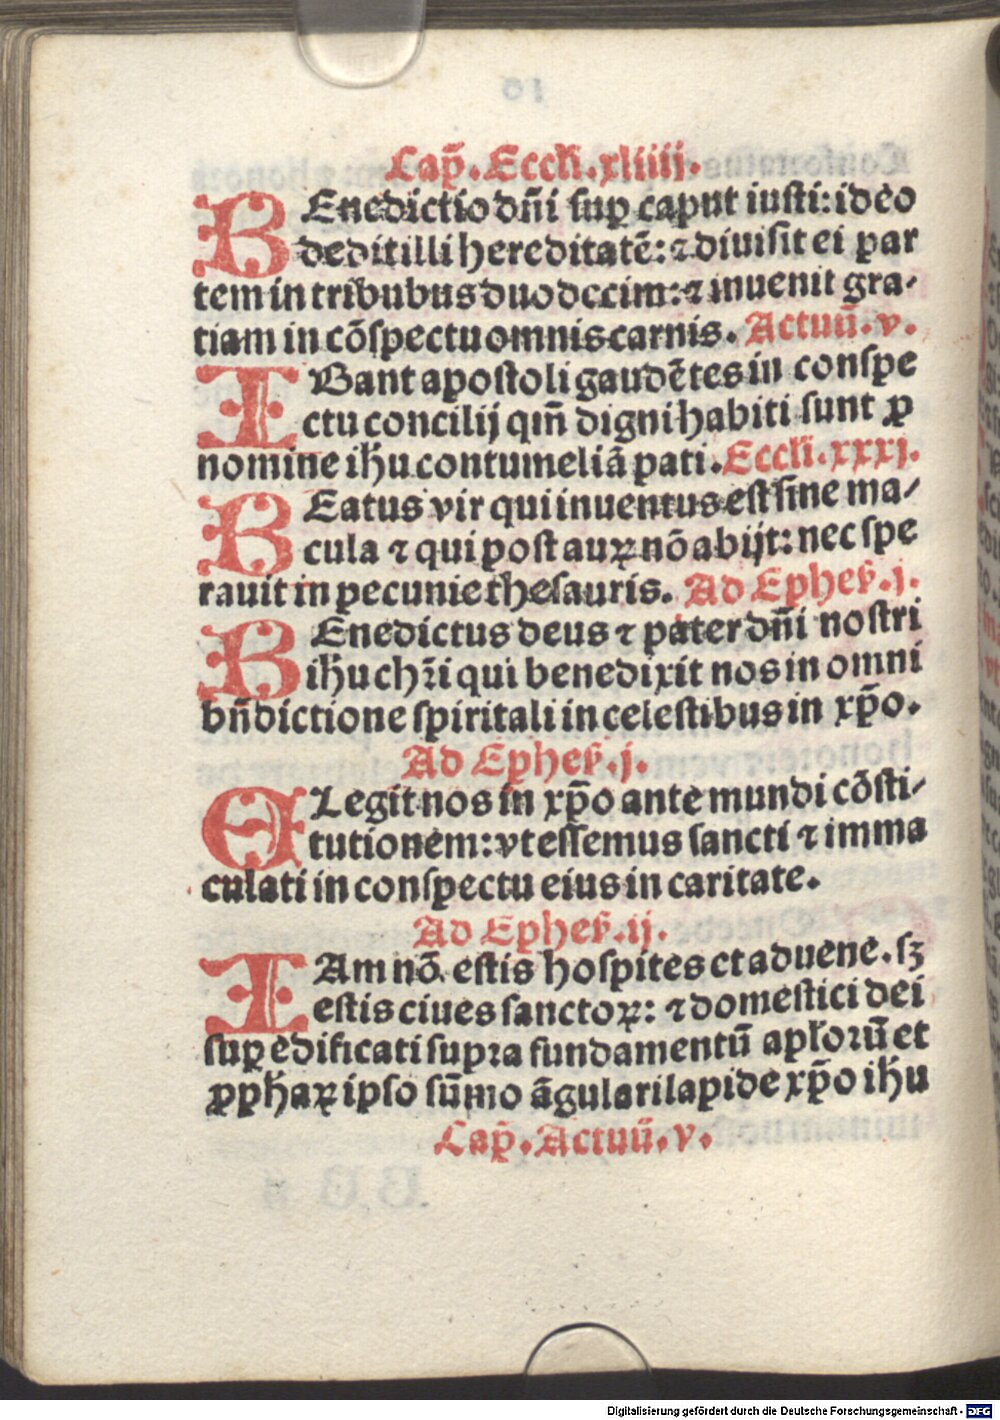 Cap̄. Eccli. xliiij.
BEnedictio dn̄i suꝑ caput iusti: ideo
dedit illi hereditatē: ⁊ diuisit ei par
tem in tribubus duodecim: ⁊ inuenit gra-
tiam in cōspectu omnis carnis. Actuū. v.
IBant apostoli gaudētes in conspe
ctu concilij qm̄ digni habiti sunt ꝓ
nomine ihu contumeliā pati. Eccli. xxxj.
BEatus vir qui inuentus est sine ma-
cula ⁊ qui post auꝝ nō abijt: nec spe
rauit in pecunie thesauris. Ad Ephes̄. j.
BEnedictus deus ⁊ pater dn̄i nostri
ihu chꝛi qui benedixit nos in omni
bn̄dictione spiritali in celestibus in xp̄o.
Ad Ephes̄. j.
ELegit nos in xp̄o ante mundi cōsti-
tutionem: vt essemus sancti ⁊ imma
culati in conspectu eius in caritate.
Ad Ephes̄. ij.
IAm nō estis hospites et aduene. sꝫ
estis ciues sanctoꝝ: ⁊ domestici dei
suꝑedificati supꝛa fundamentū apl'oꝛū et
ꝓphaꝝ ipso sūmo āgulari lapide xp̄o ihu
Cap̄. Actuū. v.
Digitalisierung gefördert durch die Deutsche Forschungsgemeinschaft - DFG